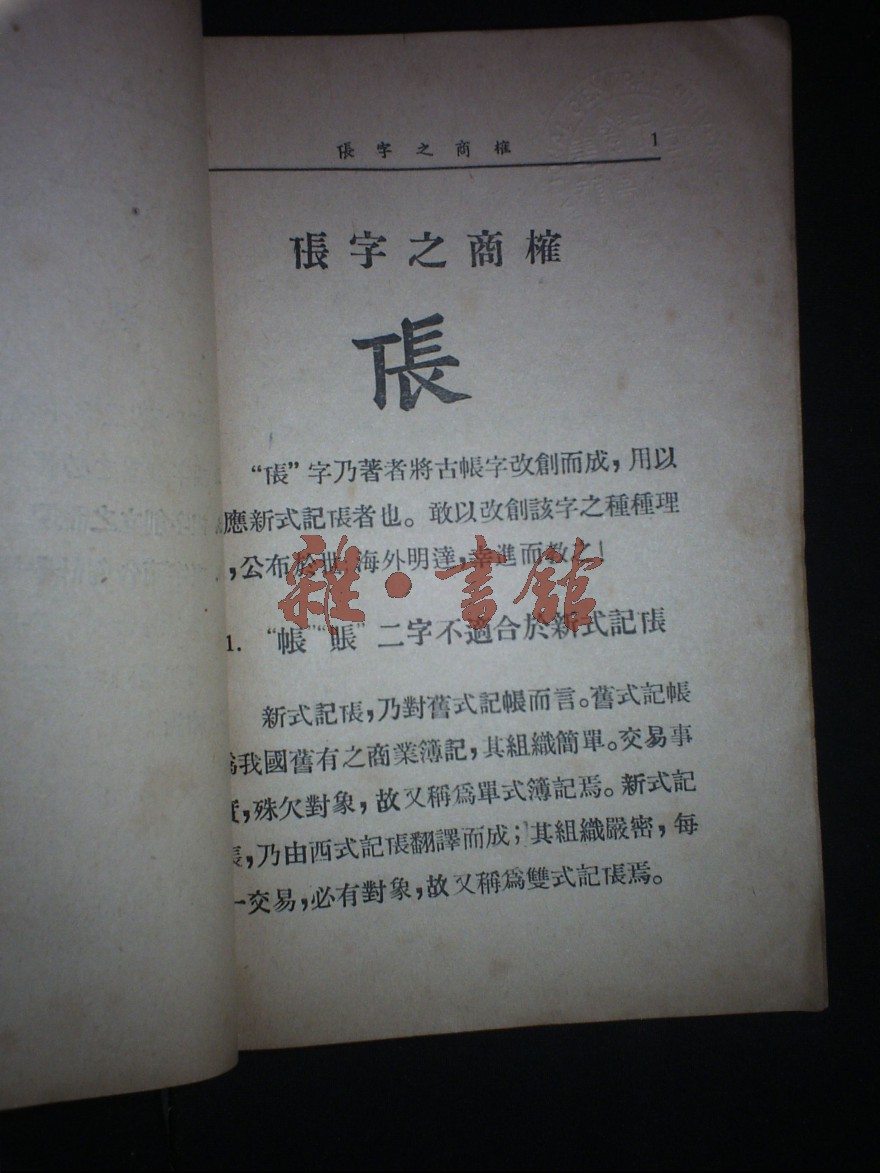 ⿰丅長字之商榷 1
⿰丅長字之商榷
⿰丅長
“⿰丅長”字乃著者將古帳字改創而成，用以
應新式記⿰丅長者也。敢以改創該字之種種理
，公布於世，海外明達，幸進而教之！
雜·書館
1. “帳”“賬”二字不適合於新式記⿰丅長
新式記⿰丅長，乃對舊式記帳而言。舊式記帳
爲我國舊有之商業簿記，其組織簡單。交易事
實，殊欠對象，故又稱爲單式簿記焉。新式記
⿰丅長，乃由西式記⿰丅長翻譯而成；其組織嚴密，每
一交易，必有對象，故又稱爲雙式記⿰丅長焉。